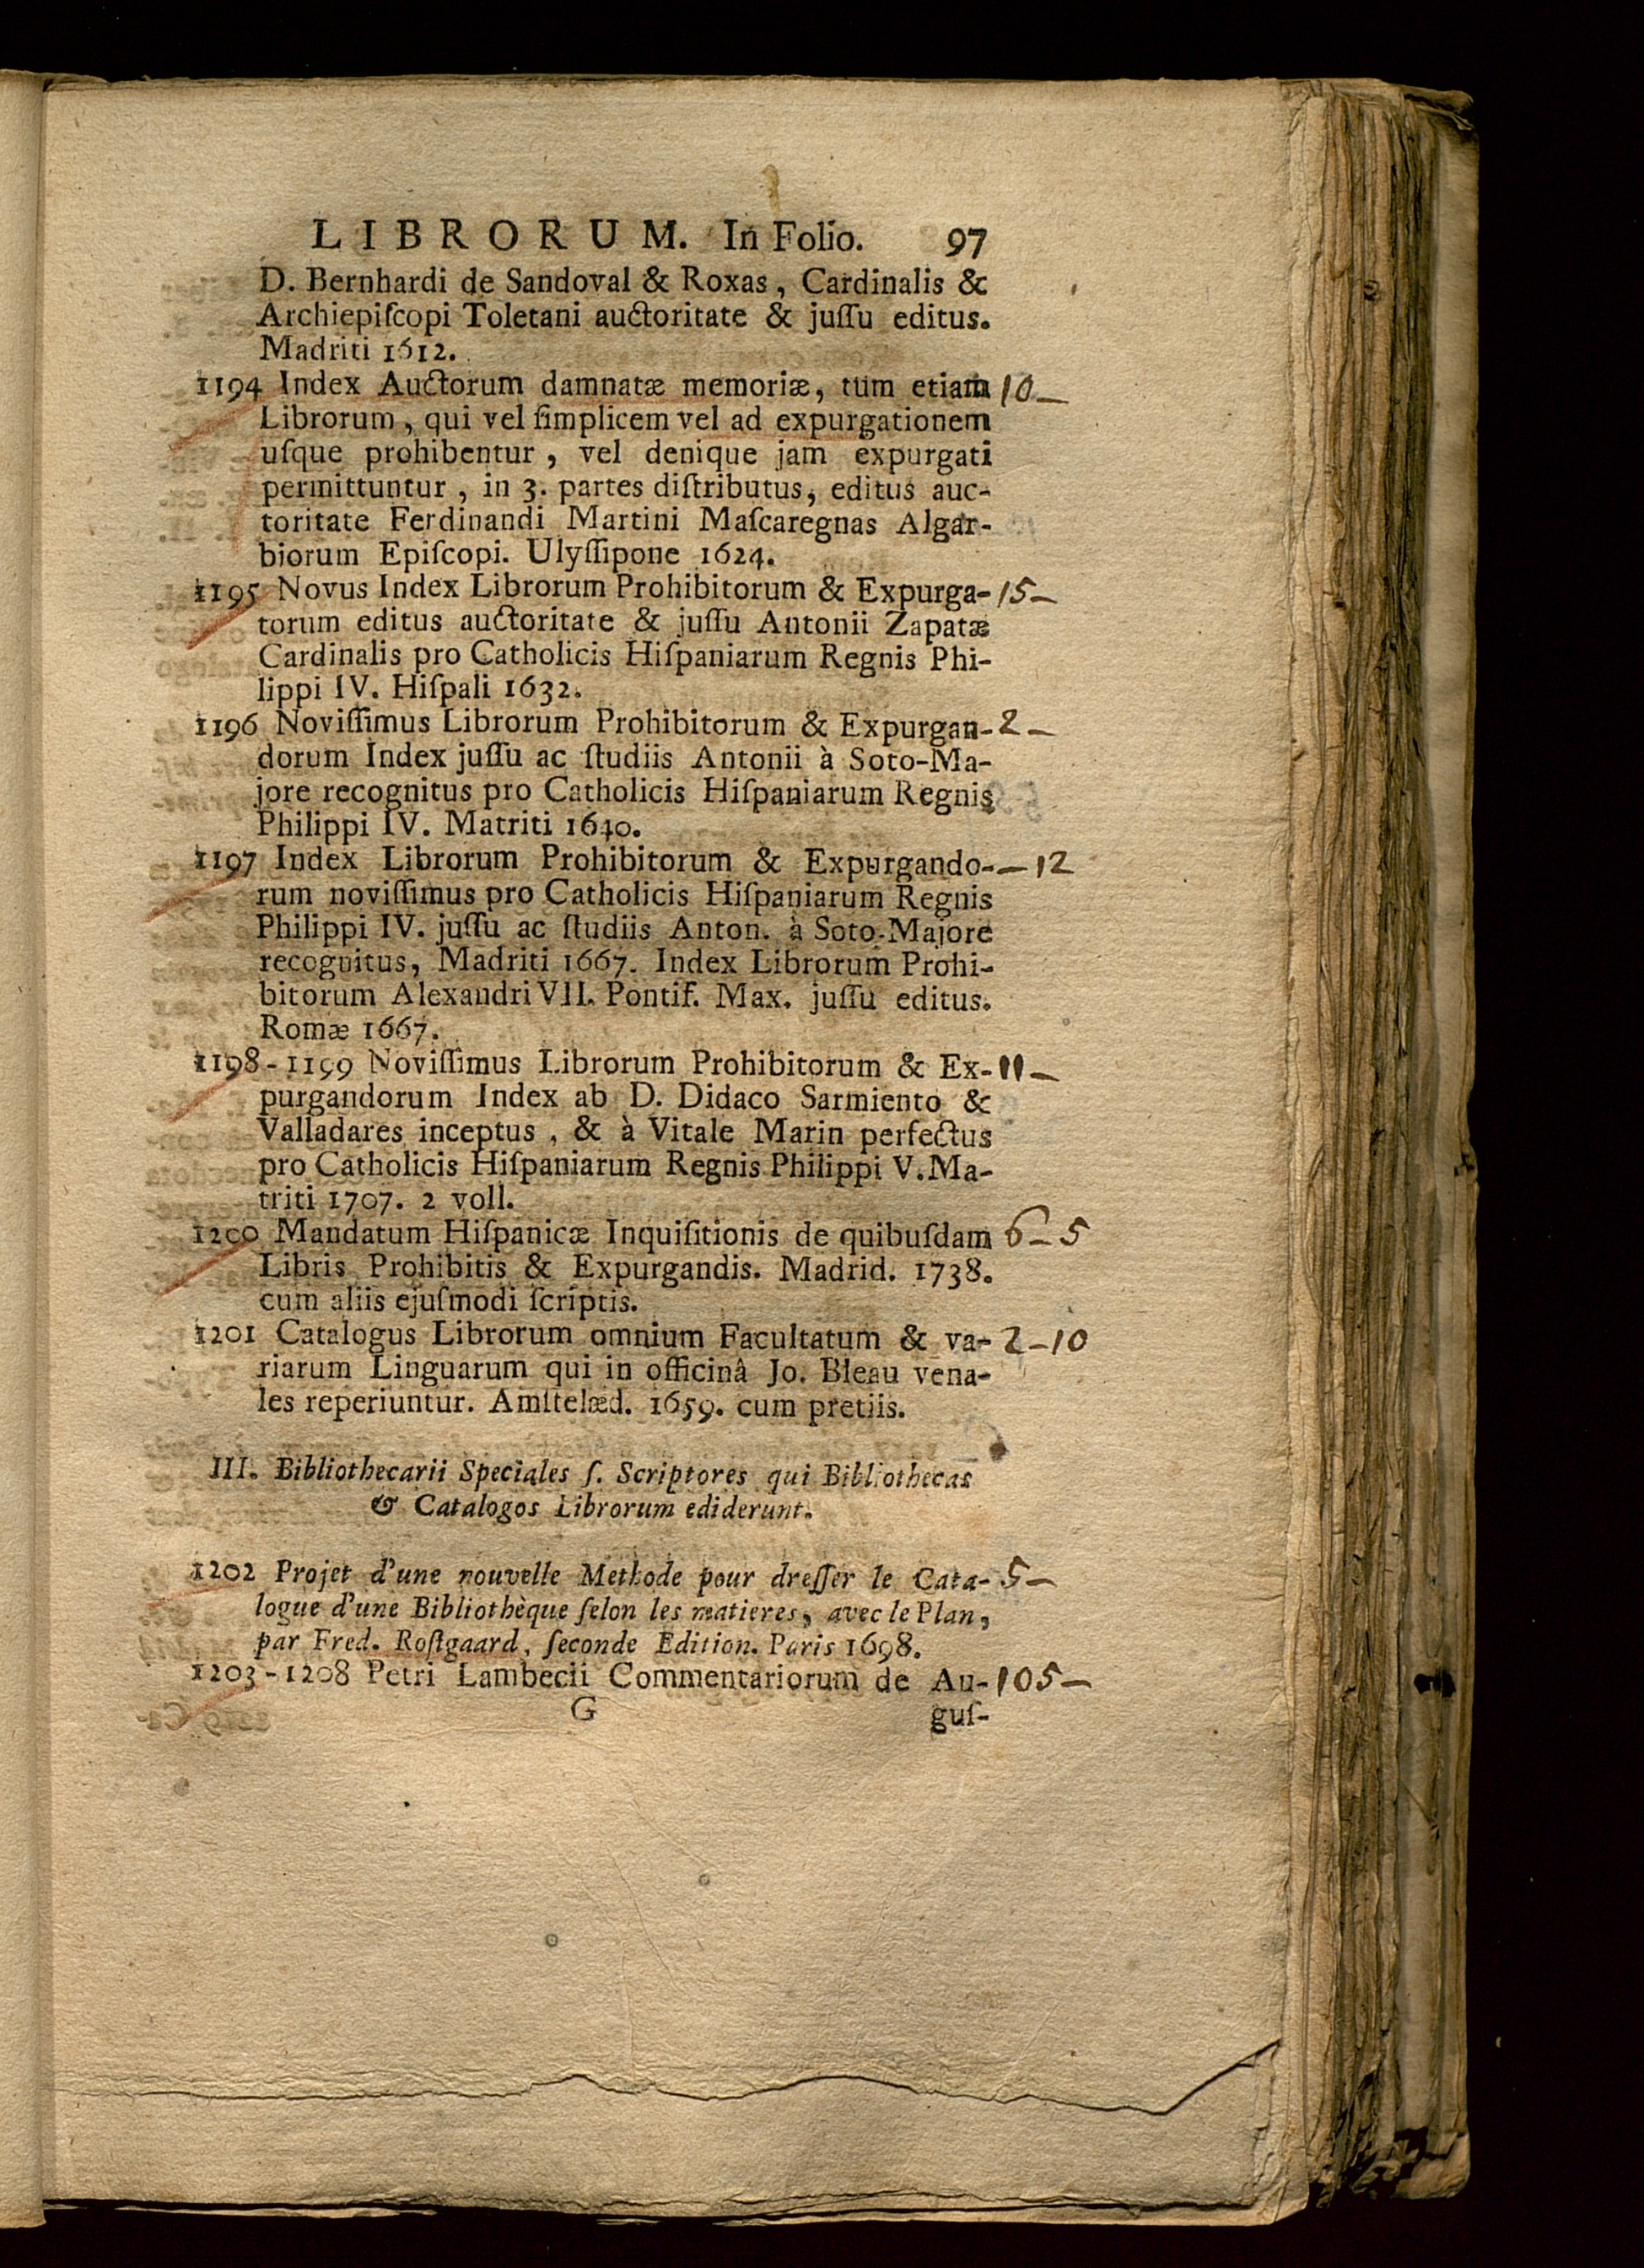 LIBRORUM. In Folio. 97
D. Bernhardi de Sandoval & Roxas, Cardinalis &
Archiepiſcopi Toletani auctoritate & juſſu editus.
Madriti 1612.
1194 Index Auctorum damnatæ memoriæ, tum etiam 10 –
Librorum, qui vel ſimplicem vel ad expurgationem
uſque prohibentur, vel denique jam expurgati
permittuntur, in 3. partes diſtributus, editus auc-
toritate Ferdinandi Martini Maſcaregnas Algar-
biorum Epiſcopi. Ulyſſipone 1624.
1195 Novus Index Librorum Prohibitorum & Expurga- 15 –
torum editus auctoritate & juſſu Antonii Zapatæ
Cardinalis pro Catholicis Hiſpaniarum Regnis Phi-
lippi IV. Hiſpali 1632.
1196 Noviſſimus Librorum Prohibitorum & Expurgan- 2 –
dorum Index juſſu ac ſtudiis Antonii à Soto-Ma-
jore recognitus pro Catholicis Hiſpaniarum Regnis
Philippi IV. Matriti 1640.
1197 Index Librorum Prohibitorum & Expurgando- – 12
rum noviſſimus pro Catholicis Hiſpaniarum Regnis
Philippi IV. juſſu ac ſtudiis Anton. à Soto-Majore
recognitus, Madriti 1667. Index Librorum Prohi-
bitorum Alexandri VII. Pontif. Max. juſſu editus.
Romæ 1667.
1198-1199 Noviſſimus Librorum Prohibitorum & Ex- 11 –
purgandorum Index ab D. Didaco Sarmiento &
Valladares inceptus, & à Vitale Marin perfectus
pro Catholicis Hiſpaniarum Regnis Philippi V. Ma-
triti 1707. 2 voll.
1200 Mandatum Hiſpanicæ Inquiſitionis de quibuſdam 6 – 5
Libris Prohibitis & Expurgandis. Madrid. 1738.
cum aliis ejuſmodi ſcriptis.
1201 Catalogus Librorum omnium Facultatum & va- 2 – 10
riarum Linguarum qui in officinâ Jo. Bleau vena-
les reperiuntur. Amſtelæd. 1659. cum pretiis.
III. Bibliothecarii Speciales ſ. Scriptores qui Bibliothecas
& Catalogos Librorum ediderunt.
1202 Projet d'une nouvelle Methode pour dreſſer le Cata- 5 –
logue d'une Bibliothèque ſelon les matieres, avec le Plan,
par Fred. Roſtgaard, ſeconde Edition. Paris 1698.
1203-1208 Petri Lambecii Commentariorum de Au- 105 –
G guſ-